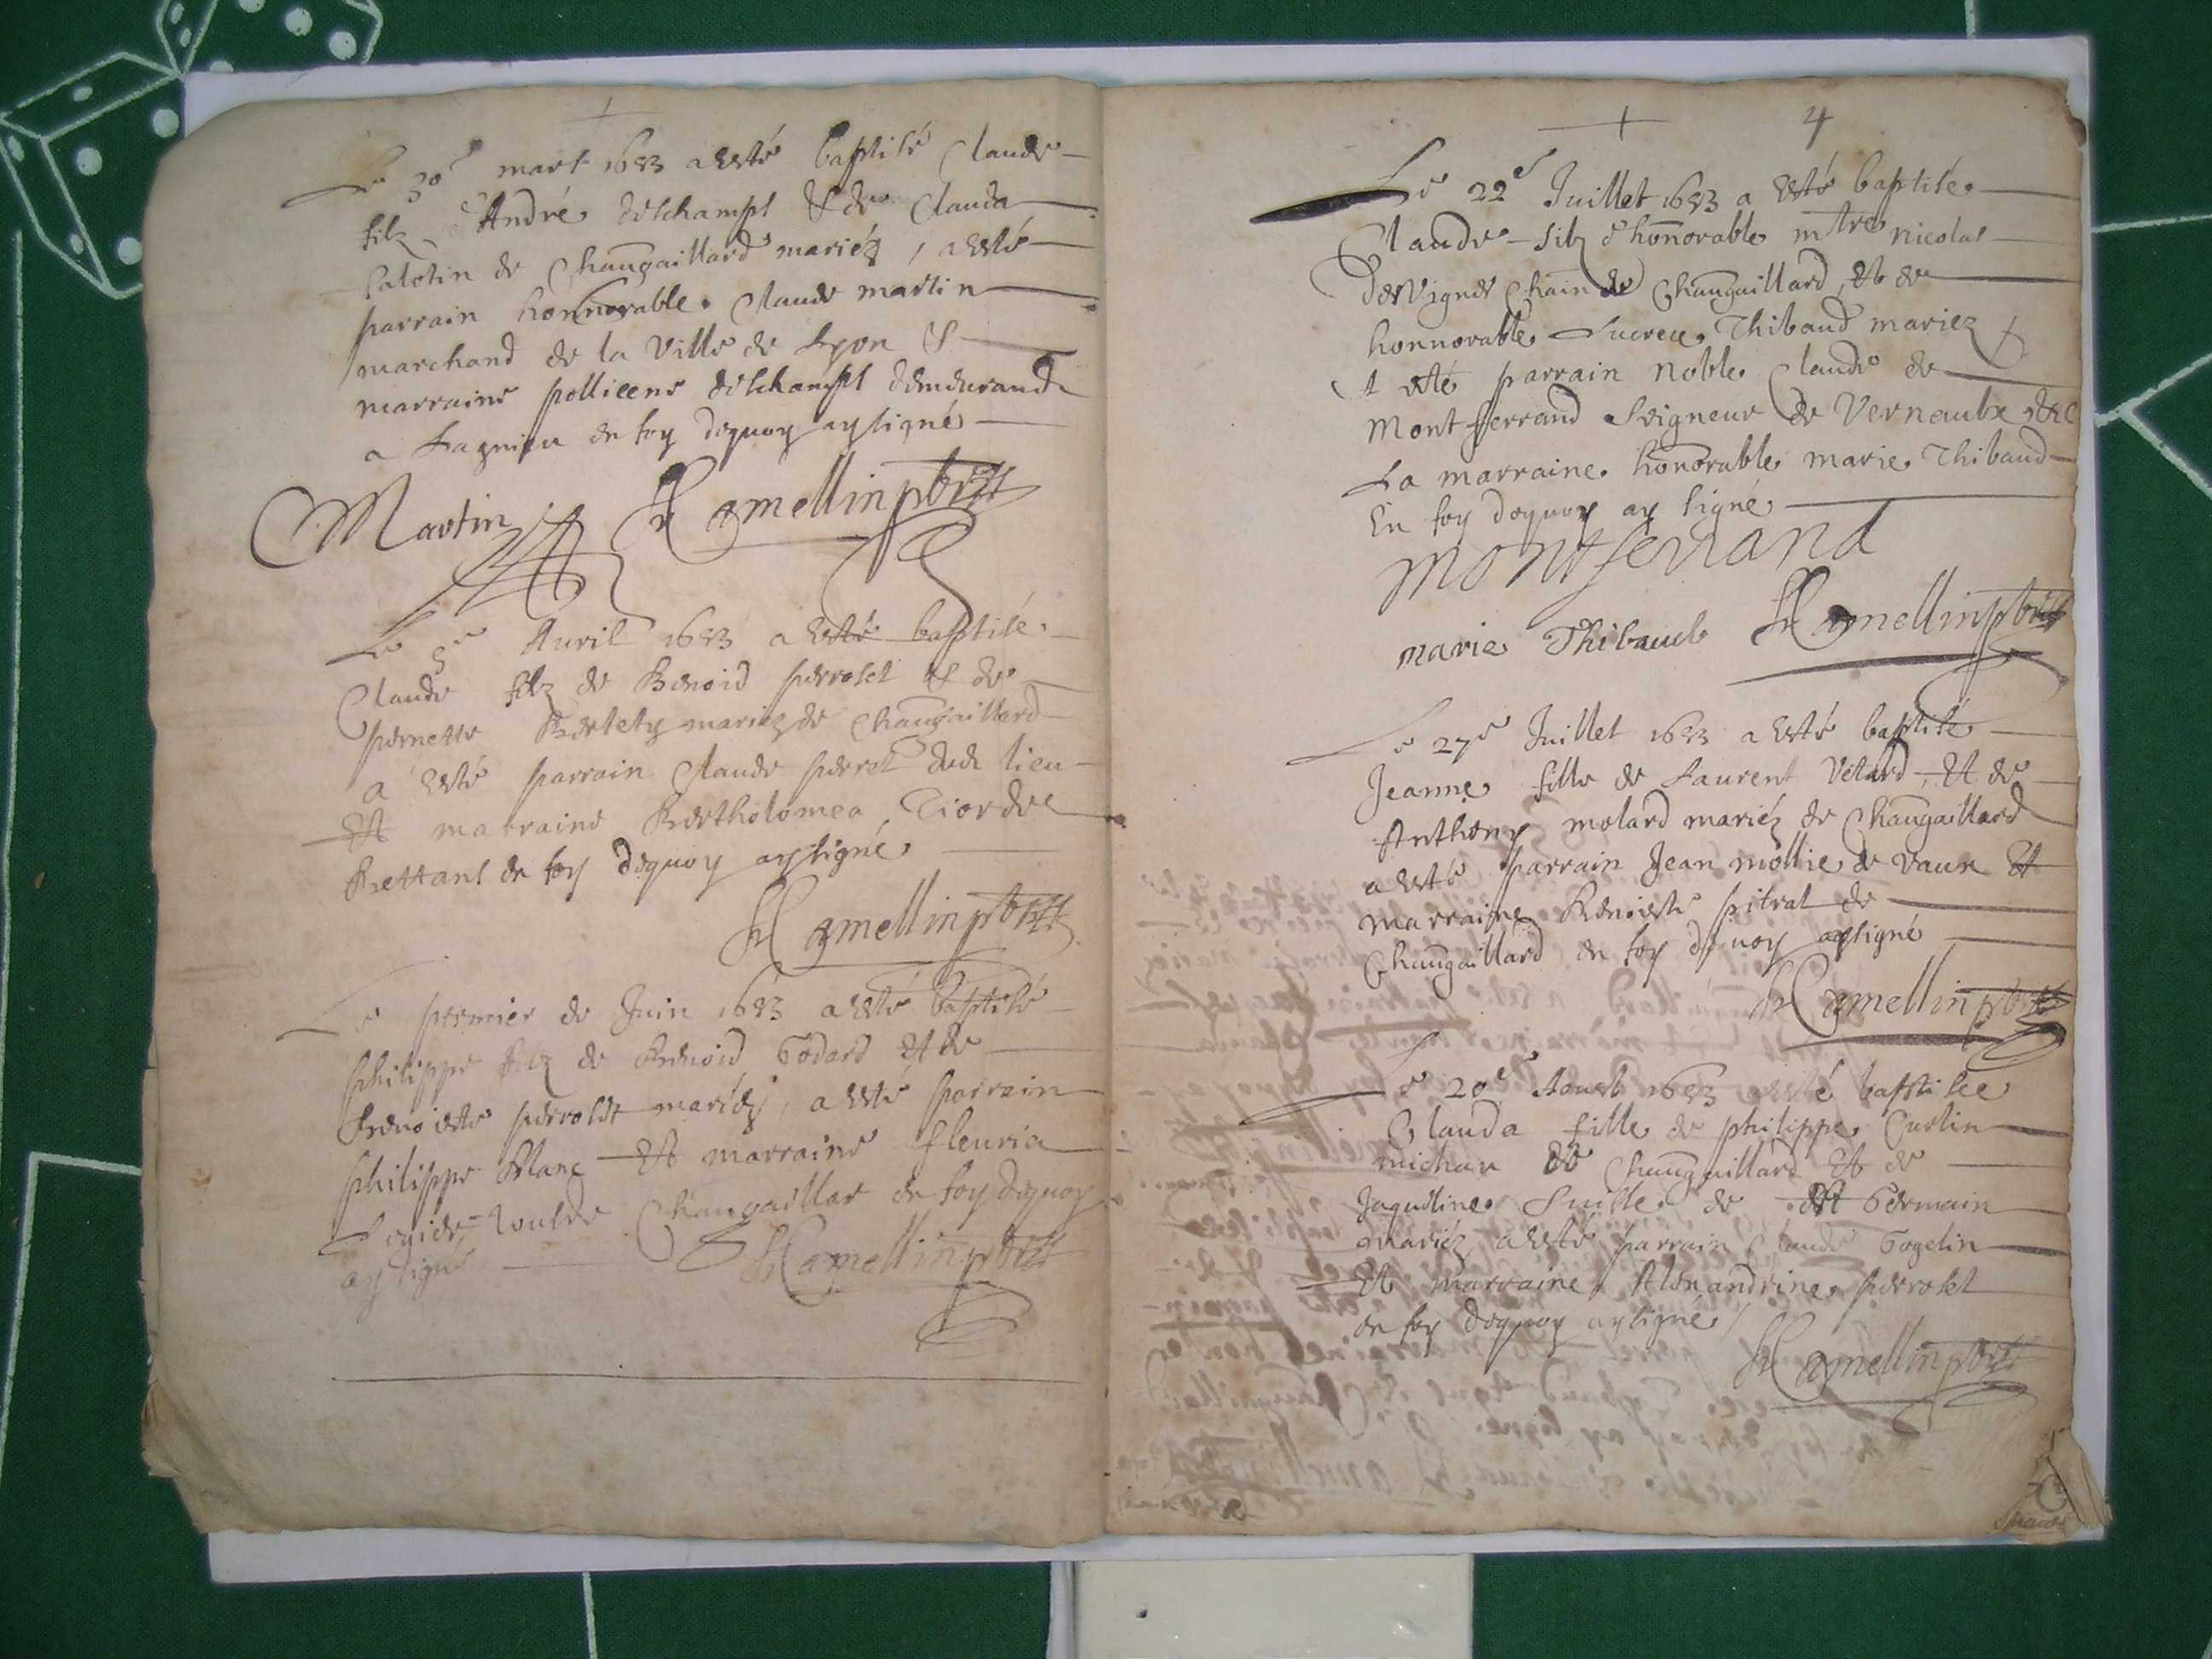 Le 30e mars 1633 a esté baptisé Claude
filz d'André deschamps & de Clauda
palotin de Chaugaillard mariéz, a esté
parrain honnorable Claude martin
marchand de la Ville de Lyon &
marraine pollicene deschamps demeurande
a Lagnieu en foy dequoy ay signé
Martin Hamellin pbtre
Le Auril 1633 a esté baptisé
Claude filz de Benoid perroset & de
pernette mariez de Chaugaillard
a esté parrain Claude perret dudt lieu
Et marraine Bertholomea
en foy dequoy ay signé
Hamellin pbtre
Le premier de Juin 1633 a esté baptisé
philippe filz de Benoid Godard Et de
Benoiste perroset mariéz, a esté parrain
philippe Blanc Et marraine fleuria
Chaugaillar en foy dequoy
ay signé Hamellin pbtre
4
Le 22e Juillet 1633 a esté baptisé
Claude filz d'honnorable mtre nicolas
desvignes de Chaugaillard, Et de
honnorable Lucrece Thibaud mariez
A esté parrain Noble Claude de
Montferrand Seigneur de Vernaulx &c
La marraine honnorable marie Thibaud
En foy dequoy ay signé
montferrand
marie Thibaud Hamellin pbtre
Le 27e Juillet 1633 a esté baptisé
Jeanne fille de Laurent Vitard, Et de
Anthony molard mariéz de Chaugaillard
a esté parrain Jean mollie de Vaux Et
marraine Benoiste pitrat de
Chaugaillard en foy dquoy ay signé
Hamellin pbtre
Le 20e Aoust 1633 a esté baptisee
Clauda fille de philippe Curlin
michau de Chaugaillard Et de
Jaqueline de St Germain
mariéz, a esté parrain Claude Gogelin
Et marraine Alexandrine perroset
en foy dequoy ay signé
Hamellin pbtre